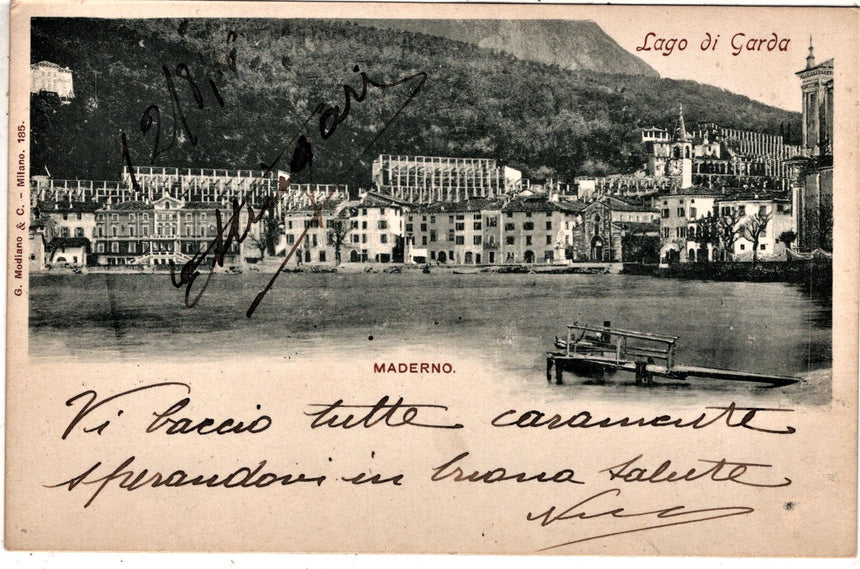 Lago di Garda
G. Modiano & C. – Milano. 185.
MADERNO.
Vi bacio tutte caramente
sperandovi in buona salute